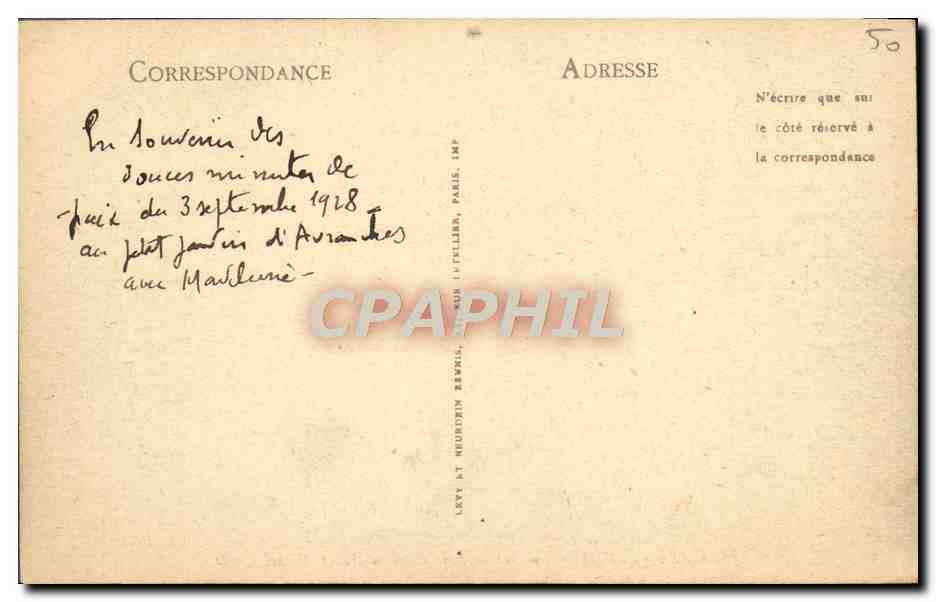 50
CORRESPONDANCE
ADRESSE
N'écrire que sur
le côté réservé à
la correspondance
En souvenir des
douces minutes de
paix du 3 septembre 1928
au petit jardin d'Avranches
avec Madeleine -
LEVY ET NEURDEIN RÉUNIS, LETELLIER, PARIS. IMP
CPAPHIL